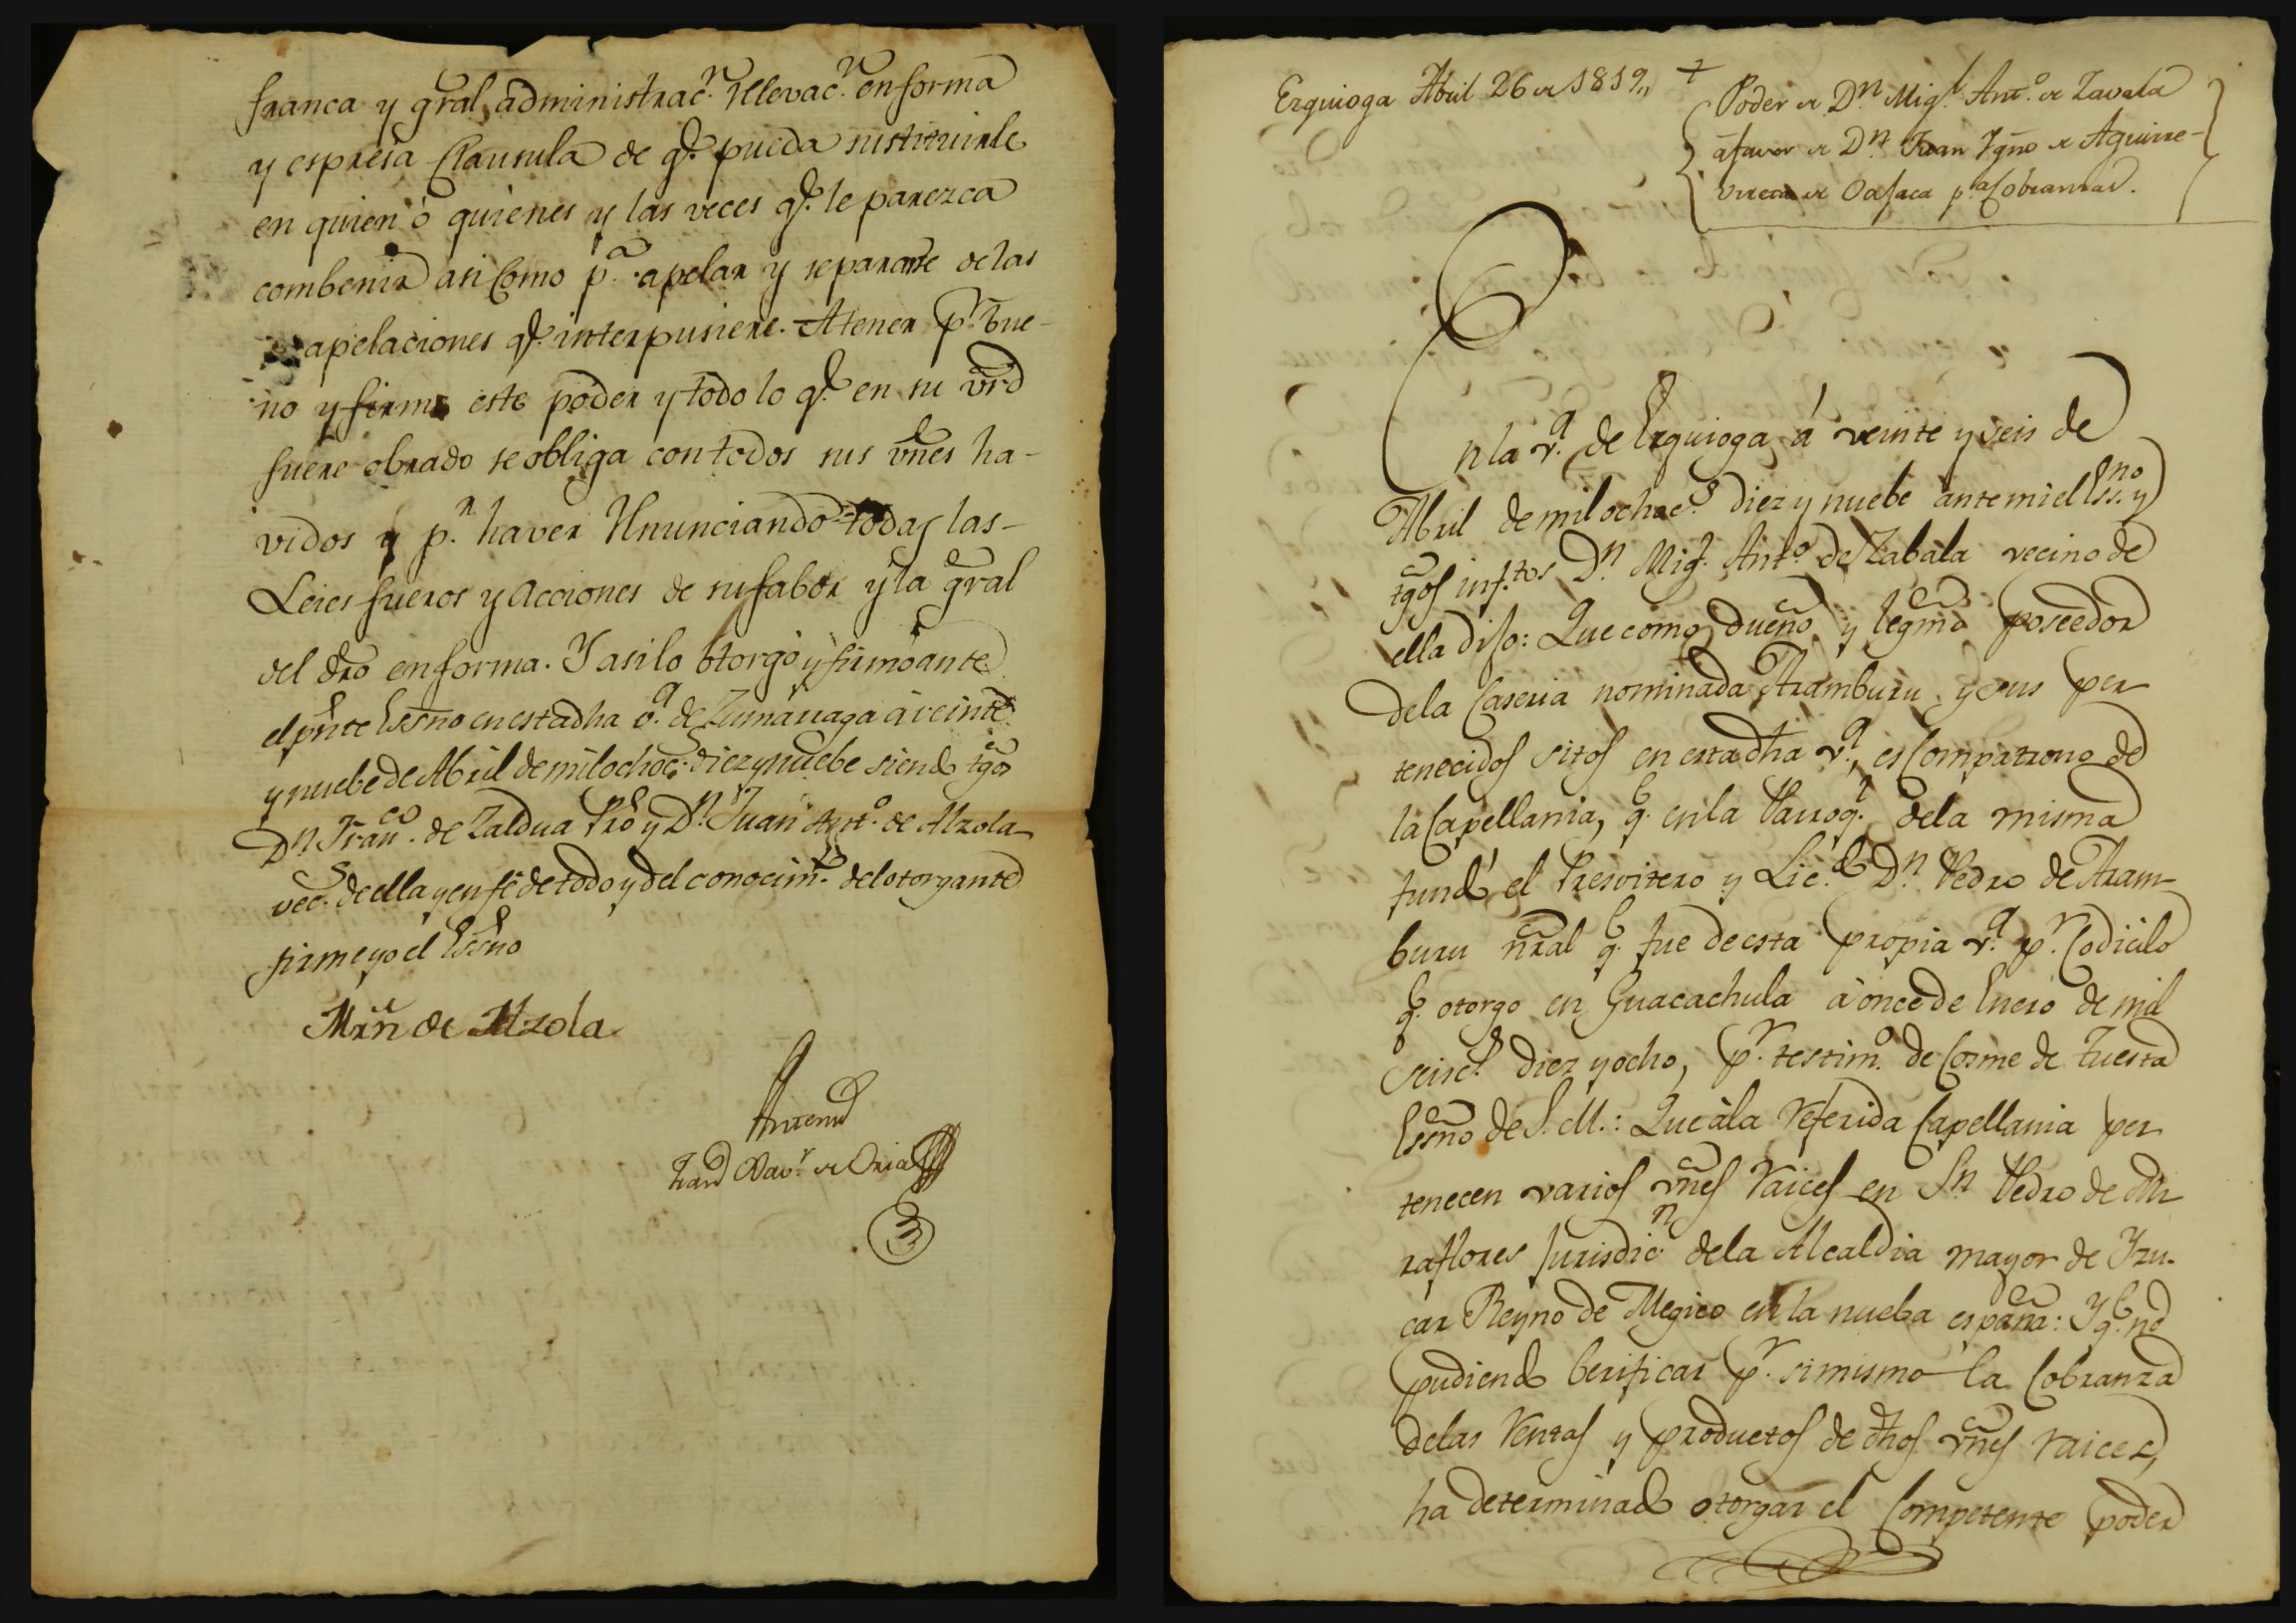 franca y gral, administrac.n Rlevac.n en forma
y espresa Clausula de q.e pueda sustituirle
en quien ó quienes y las veces q.e le parezca
combenir asi Como p.a apelar y separarse de las
apelaciones q.e interpusiere. A tener p.r bue-
no y firme este poder y todo lo q.e en su vrd
fuere obrado se obliga con todos sus vnes ha-
vidos y p.r haver Rnunciando todas las-
Leies fueros y acciones de su fabor y la gral
del dro en forma. Y asi lo otorgó y firmó ante
el pnte Essno en esta dha v.a de Zumarraga á veinte
y nuebe de Abril de mil ochoc.s diez y nuebe siendo tgos
D.n Fran.co de Zaldua Pro y D.n Juan Ant.o de Alzola
vec.s de ella y en fé de todo y del conocim.to del otorgante
firme yo el Essno
Mrn de Alzola
Antemi
Xav.r de Oria
Ezquioga Abril 26 de 1819,,
+
Poder de D.n Mig.l Ant.o de Zavala
á favor de D.n Juan Ygno de Aguirre-
urreta de Oajaca p.a Cobranzas.
En la v.a de Ezquioga á veinte y seis de
Abril de mil ochoc.s diez y nuebe ante mi el Ess.no y
tgos inf.tos D.n Mig.l Ant.o de Zabala vecino de
ella dijo: Que como dueño y legmo poseedor
de la Caseria nominada Aramburu y sus per
tenecidos sitos en esta dha v.a, es Compatrono de
la Capellania, q.e en la Parroq.l de la misma
fundó el Presvitero y Lic.do D.n Pedro de Aram-
buru nral q.e fue de esta propia v.a p.r Codicilo
q.e otorgo en Guacachula á once de Enero de mil
seisc.s diez y ocho, p.r testim.o de Cosme de Tuesta
Essno de S. M.: Que á la referida Capellania per
tenecen varios vnes raices en S.n Pedro de Mi
raflores Jurisdic.n de la Alcaldia mayor de Yzu-
car Reyno de Megico en la nueba españa: Y q.e no
pudiendo berificar p.r si mismo la Cobranza
de las rentas y productos de dhos vnes raices,
ha determinado otorgar el Competente poder